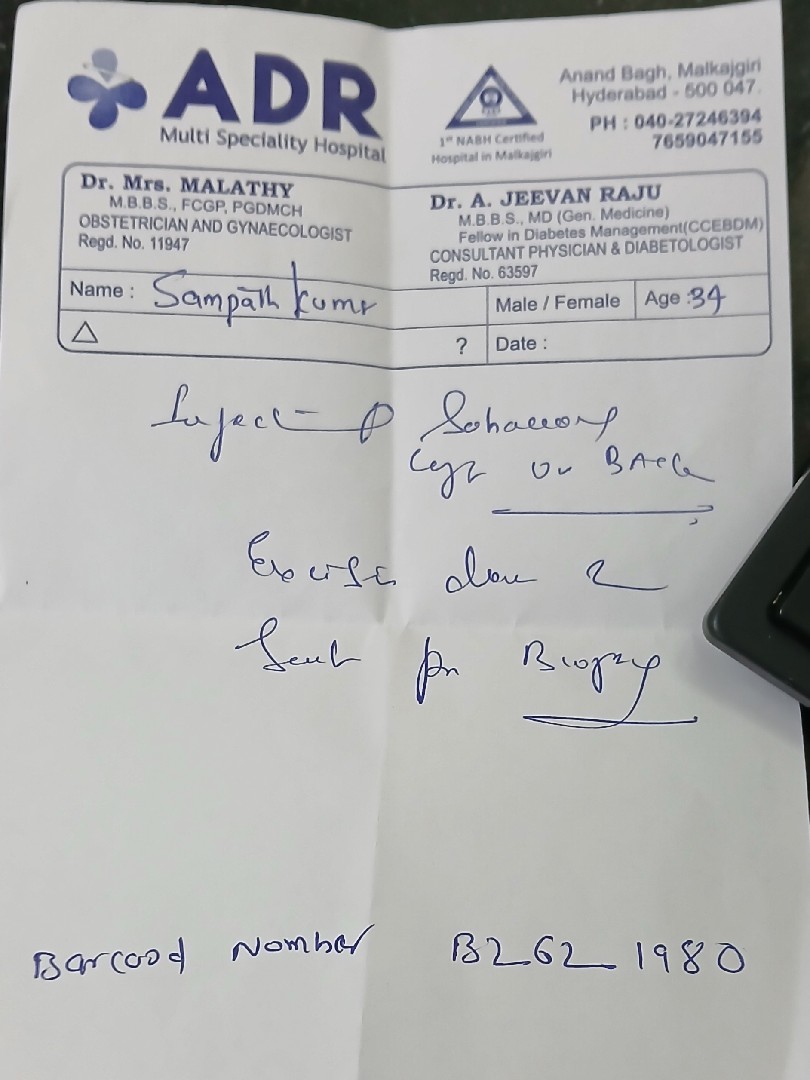 ADR
Multi Speciality Hospital
1st NABH Certified
Hospital in Malkajgiri
Anand Bagh, Malkajgiri
Hyderabad - 500 047.
PH : 040-27246394
7659047155
Dr. Mrs. MALATHY
M.B.B.S., FCGP, PGDMCH
OBSTETRICIAN AND GYNAECOLOGIST
Regd. No. 11947
Dr. A. JEEVAN RAJU
M.B.B.S., MD (Gen. Medicine)
Fellow in Diabetes Management(CCEBDM)
CONSULTANT PHYSICIAN & DIABETOLOGIST
Regd. No. 63597
Name : Sampath Kumr
Male / Female Age :34
△ ? Date :
done
Sent for Biopsy
Barcood Nomber B2621980